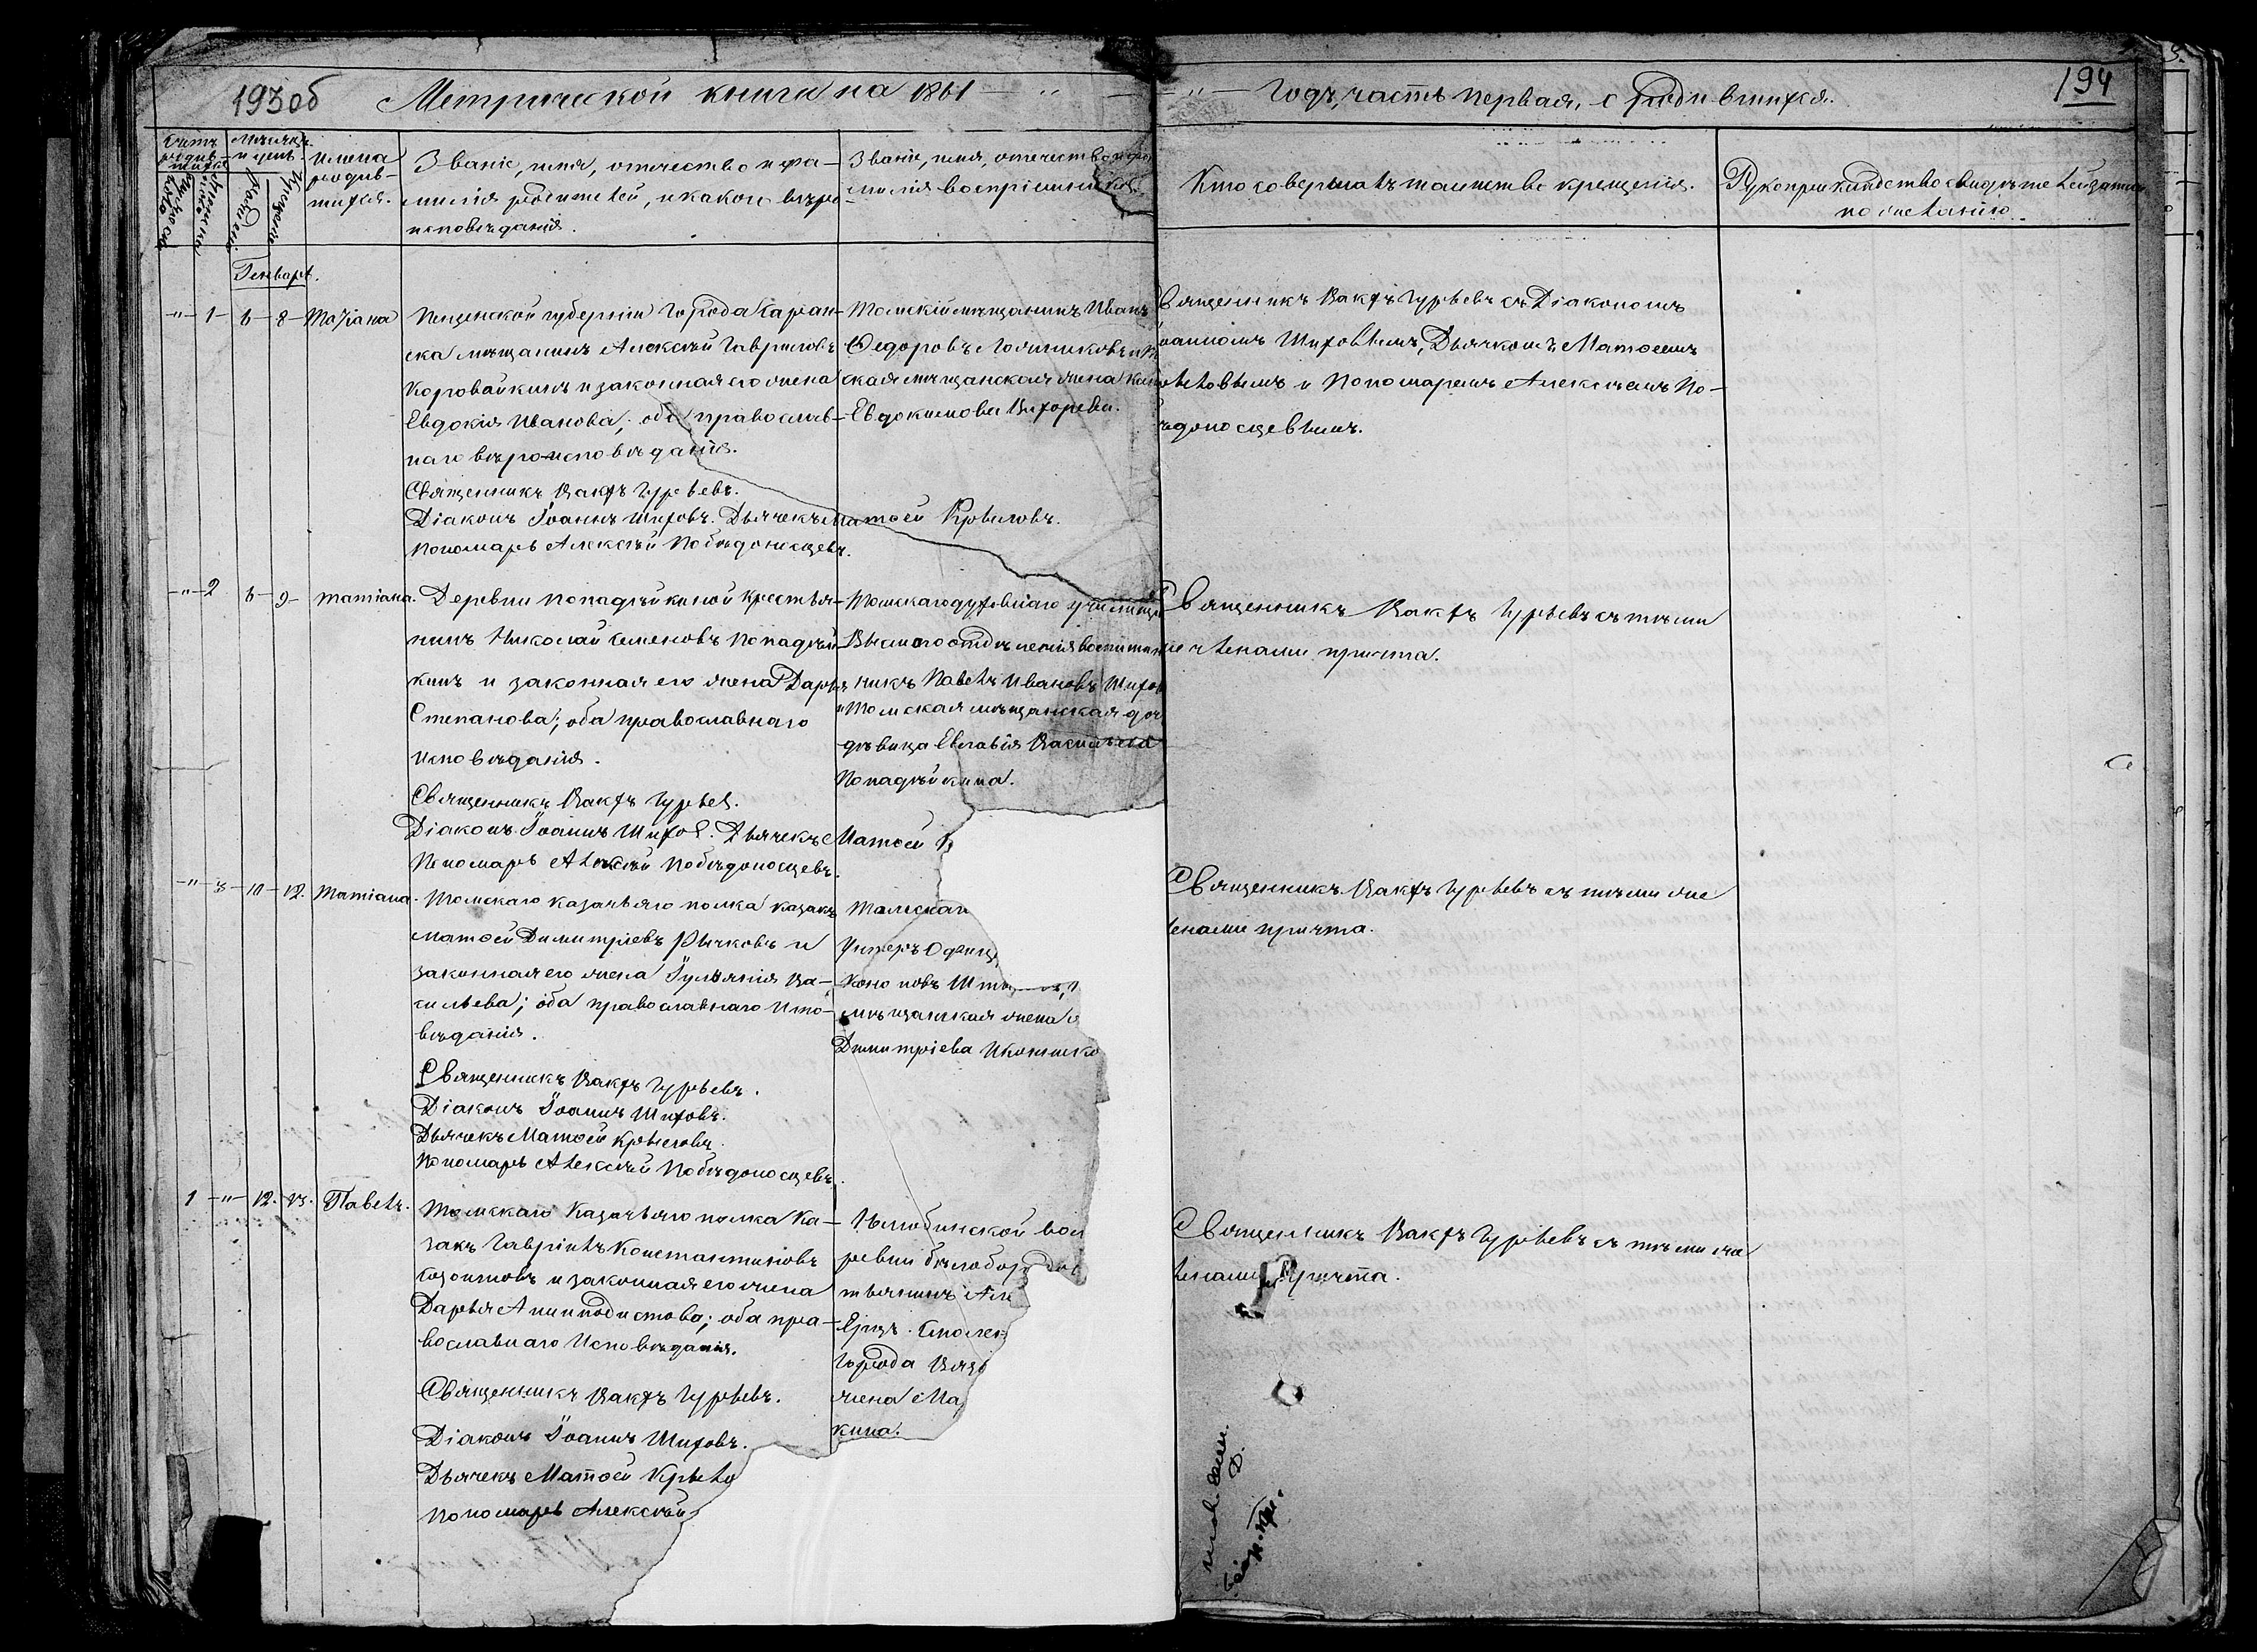 193об
Метрической книги на 1861 — " —
— " — годъ, часть первая, о родившихся.
194
Счетъ родив-
шихся.
Мѣсяцъ
и день.
Рожденія
Крещенія
Имена
родив-
шихся.
Званіе, имя, отчество и фа-
милія родителей, и какого вѣро-
исповѣданія.
Званіе, имя, отчество и фа
милія воспріемниковъ.
Кто совершалъ таинство крещенія.
Рукоприкладство свидѣтелей записи
по желанію.
Генварь.
— " — 1 — 6 — 8 —
Пензенской губерніи города Саран-
ска мѣщанинъ Алексѣй Гавриловъ
Коровайкинъ и законная его жена
Евдокія Иванова; оба православ-
наго вѣроисповѣданія.
Священникъ Вакхъ Гурьевъ.
Діаконъ Іоаннъ Шиховъ. Дьячекъ Матѳей Крыловъ.
Пономарь Алексѣй Побѣдоносцевъ.
Томскій мѣщанинъ Иванъ
Ѳедоровъ
ская мѣщанская жена
Евдокимова Вихорева.
Священникъ Вакхъ Гурьевъ съ Діакономъ
оанномъ Шиховымъ, Дьячкомъ Матѳеемъ
рыловымъ и Пономаремъ Алексѣемъ По-
ѣдоносцевымъ.
— " — 2 6 — 9 — Татіана.
Деревни Попадѣйкиной крестья-
нинъ Николай Семеновъ Попадѣй-
кинъ и законная его жена Дарья
Степанова; оба православнаго
исповѣданія.
Священникъ Вакхъ Гурьев.
Діаконъ Іоаннъ Шихов. Дьячекъ Матѳей К
Пономарь Алексѣй Побѣдоносцевъ.
Томскаго духовнаго училища
Высшаго отдѣленія воспитан
никъ Павелъ Ивановъ Шихов
и Томская мѣщанская доч
дѣвица Евлавія Васильева
Попадѣйкина.
Священникъ Вакхъ Гурьевъ съ тѣми
же членами причта.
— " — 3 — 10 — 12. Татіана.
Томскаго казачьяго полка казакъ
Матѳей Димитріевъ Рычковъ и
законная его жена Іуліанія Ва-
сильева; оба православнаго испо-
вѣданія.
Священникъ Вакхъ Гурьевъ.
Діаконъ Іоаннъ Шиховъ.
Дьячекъ Матѳей Крыловъ.
Пономарь Алексѣй Побѣдоносцевъ.
Томскаг
Унтеръ Офиц
мѣщанская жена
Димитріева Иконнико
Священникъ Вакхъ Гурьевъ съ тѣми же
ленами причта.
1 — " — 12. 13. Павелъ.
Томскаго Казачьяго полка Ка-
закъ Гавріилъ Константиновъ
и законная его жена
Дарья Анемподистова; оба пра-
вославнаго Исповѣданія.
Священникъ Вакхъ Гурьевъ.
Діаконъ Іоаннъ Шиховъ.
Дьячекъ Матѳей Крыло
Пономарь Алексѣй
Нелюбинской вол
ревни Бѣлобор
тьянинъ Але
Смолен
города Вязь
жена Ма
кина.
Священникъ Вакхъ Гурьевъ съ тѣми же
ленами причта.